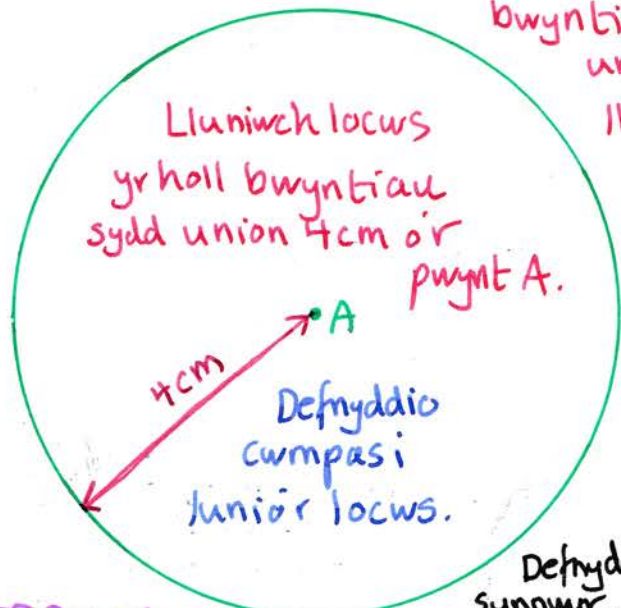 Lluniwch locws
yr holl bwyntiau
sydd union 4cm o'r
pwynt A.
A
4cm
Defnyddio
cwmpas i
lunio'r locws.